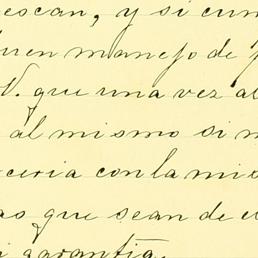 escan, y si cum
buen manejo de p
V. que una vez al
al mismo si n
ceria con la mis
as que sean de c
i garantía.